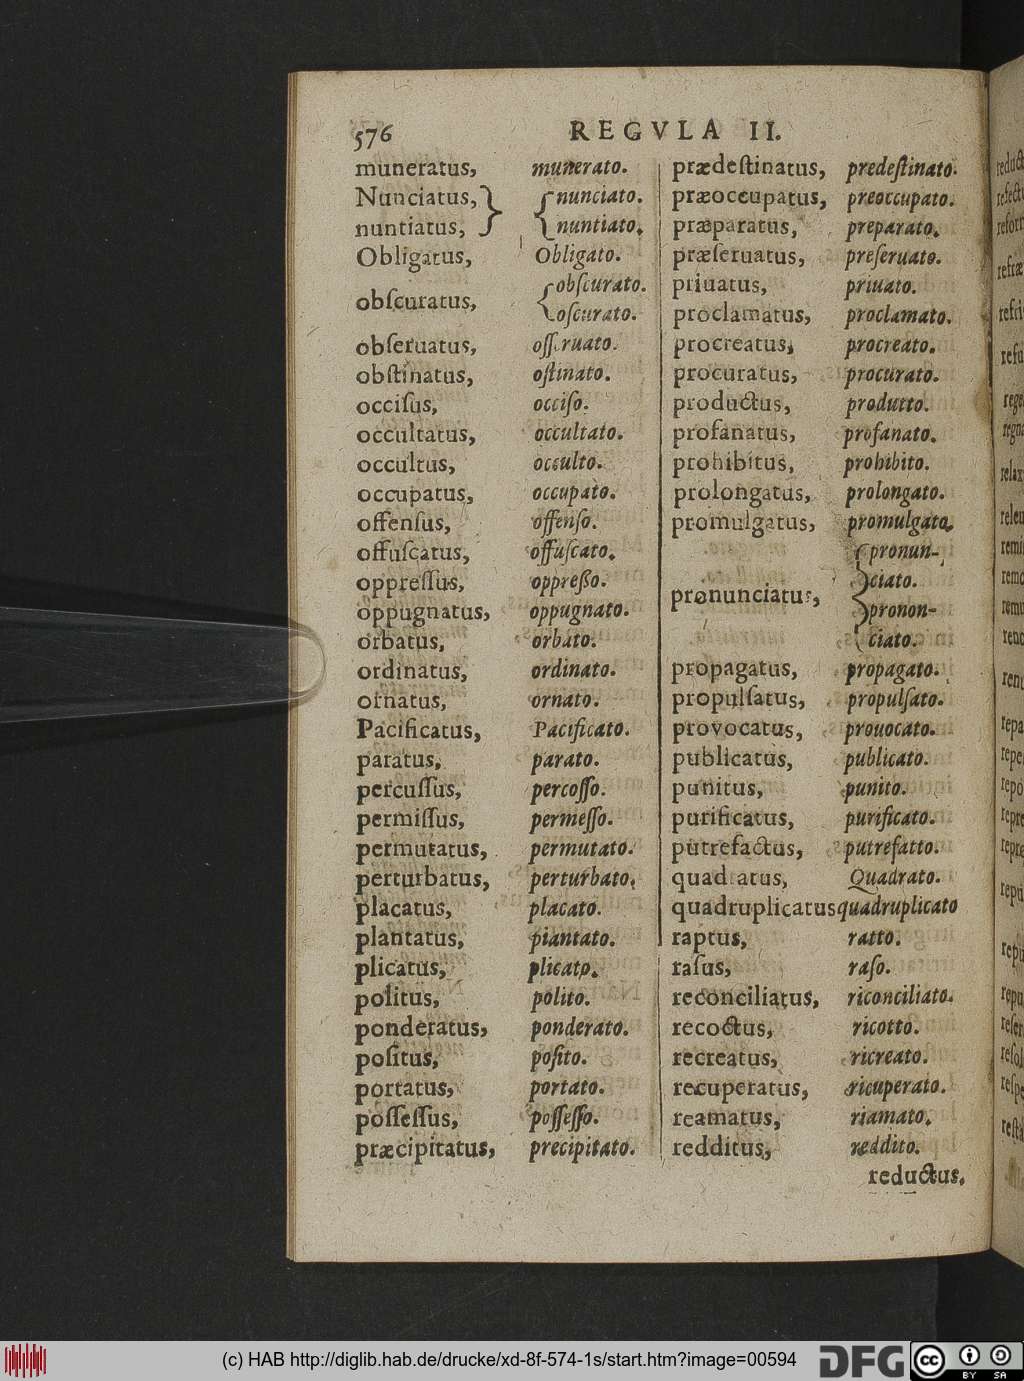 576 REGVLA II.
muneratus, munerato.
Nunciatus, nunciato.
nuntiatus, nuntiato.
Obligatus, Obligato.
obſcuratus, obſcurato.
oſcurato.
obſeruatus, oſſeruato.
obſtinatus, oſtinato.
occiſus, occiſo.
occultatus, occultato.
occultus, occulto.
occupatus, occupato.
offenſus, offenſo.
offuſcatus, offuſcato.
oppreſſus, oppreßo.
oppugnatus, oppugnato.
orbatus, orbato.
ordinatus, ordinato.
ornatus, ornato.
Pacificatus, Pacificato.
paratus, parato.
percuſſus, percoſſo.
permiſſus, permeſſo.
permutatus, permutato.
perturbatus, perturbato.
placatus, placato.
plantatus, piantato.
plicatus, plicato.
politus, polito.
ponderatus, ponderato.
poſitus, poſito.
portatus, portato.
poſſeſſus, poſſeſſo.
præcipitatus, precipitato.
prædeſtinatus, predeſtinato.
præoccupatus, preoccupato.
præparatus, preparato.
præſeruatus, preſeruato.
priuatus, priuato.
proclamatus, proclamato.
procreatus, procreato.
procuratus, procurato.
productus, produtto.
profanatus, profanato.
prohibitus, prohibito.
prolongatus, prolongato.
promulgatus, promulgato.
pronunciatus, pronun-
ciato.
pronon-
ciato.
propagatus, propagato.
propulſatus, propulſato.
provocatus, prouocato.
publicatus, publicato.
punitus, punito.
purificatus, purificato.
putrefactus, putrefatto.
quadratus, Quadrato.
quadruplicatus quadruplicato
raptus, ratto.
raſus, raſo.
reconciliatus, riconciliato.
recoctus, ricotto.
recreatus, ricreato.
recuperatus, ricuperato.
reamatus, riamato.
redditus, reddito.
reductus.
(c) HAB http://diglib.hab.de/drucke/xd-8f-574-1s/start.htm?image=00594
DFG
cc BY SA